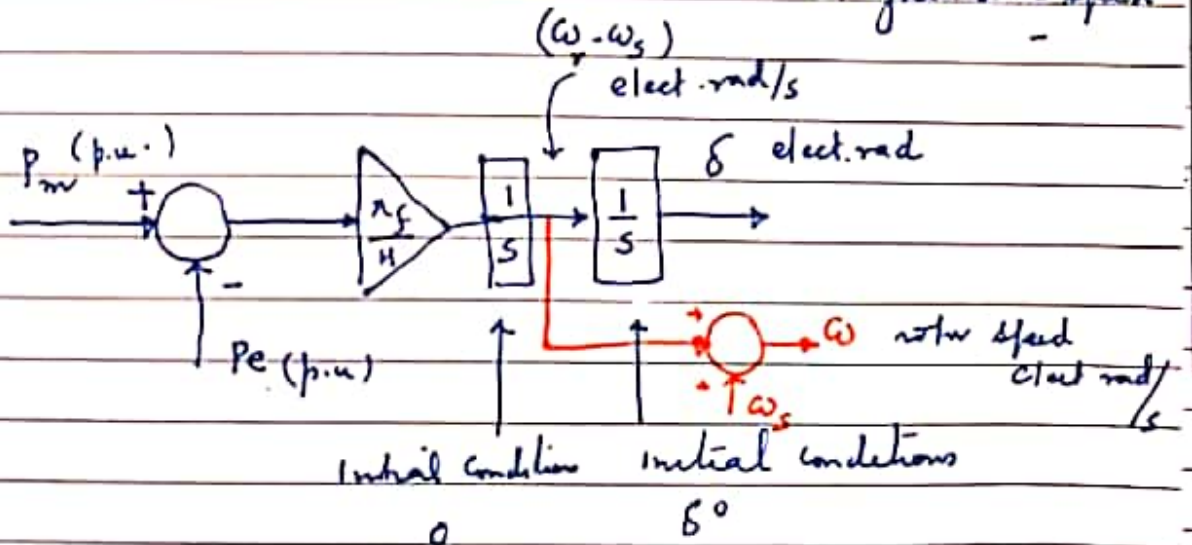 (ω_r - ω_s)
elect. rad/s
P_m (p.u.)
+
π f
H
1
S
1
S
δ elect. rad
-
Pe (p.u)
+
ω rotor speed
elect rad/s
+
ω_s
Initial conditions initial conditions
0 δ°